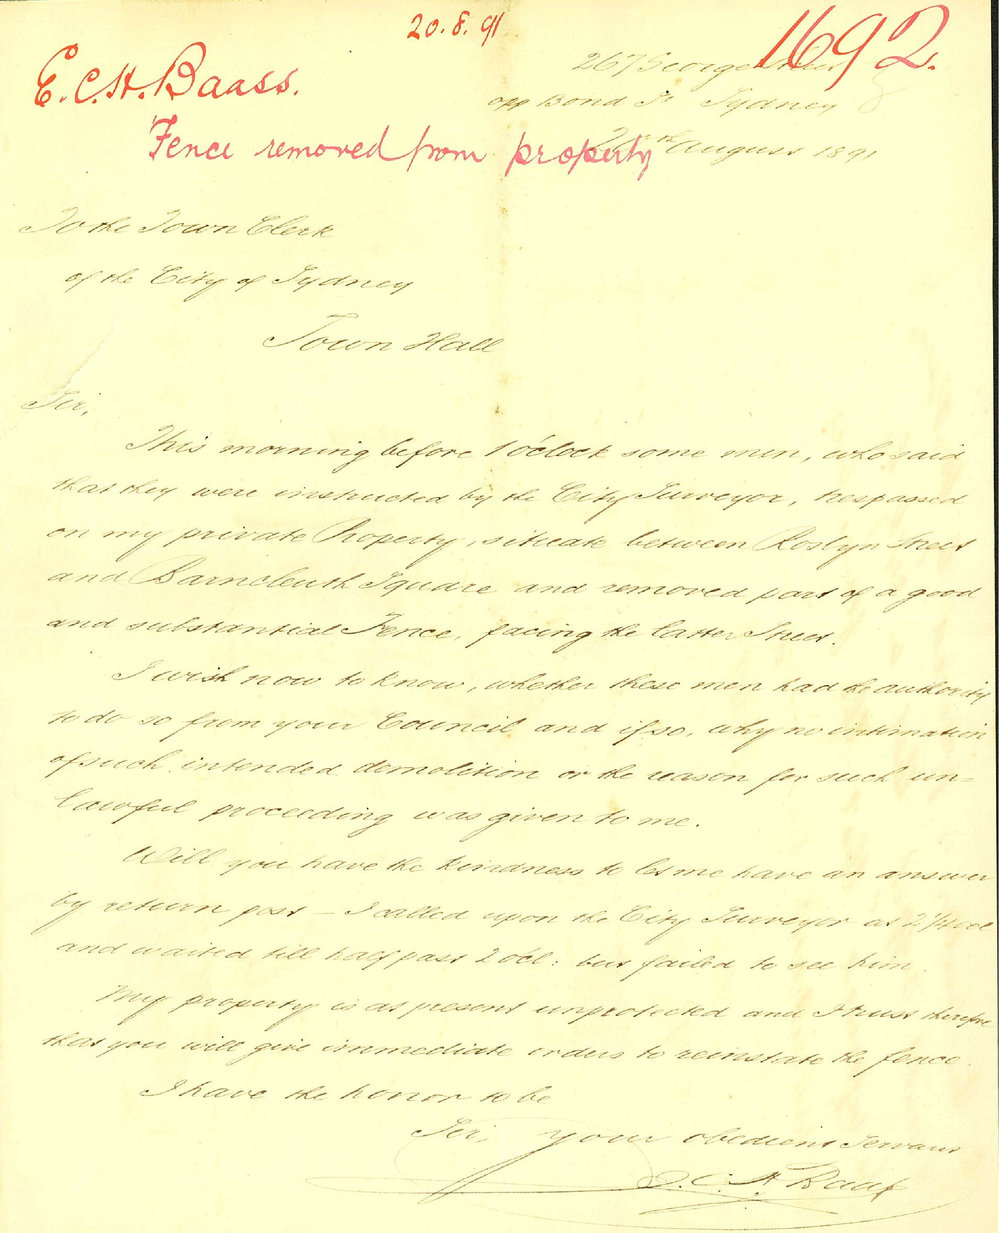 20.8.91
1692.
E.C.H. Baass.
Fence removed from property
267 George Street
opp Bond St Sydney
August 1891
To the Town Clerk
of the City of Sydney
Town Hall
Sir,
This morning before 1 o'clock some men, who said
that they were instructed by the City Surveyor, trespassed
on my private Property, situate between Roslyn Street
and Barncleuth Square and removed part of a good
and substantial Fence, facing the latter Street.
I wish now to know, whether these men had the authority
to do so from your Council and if so, why no intimation
of such intended demolition or the reason for such un=
lawful proceeding was given to me.
Will you have the kindness to let me have an answer
by return post – I called upon the City Surveyor at 2 1/4 ocl
and waited till half past 2 ocl: but failed to see him.
My property is at present unprotected and I trust therefore
that you will give immediate orders to reinstate the fence.
I have the honor to be
Sir, your obedient Servant
E. C. H. Baass